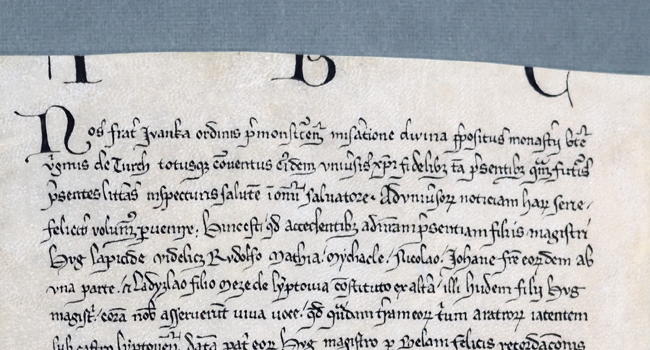 A B C
Nos frat Ivanka ordinis p̄monst͡cen̄ misatione divina p̄positus monastij bte
v̓ginis de Turch totusq̨ cōventus eidem univisis xp̄i fidelibz tā p̄sentibz q̄m futuris
p̄sentes litt̄as inspecturis salutē ī om̄i salvatore. Ad univisoꝝ noticiam harū serie
felicit̓ volum̄ ꝑvenire. Huncest qd̓ accedentibz ad n̄ram p̄sentiam filiis magistri
Hvg lapicide videlicz Rvdolfo Mathia. Mychaele. Nicolao. Johane fr̄e eordem ab
vna parte. Ladyzlao filio Meze de lyptovia cōstituto ex alt̄a. illi hiidem filij Hvg
magist̄. corā nob̓ asserverūt viva voce. qd̓ q̄ndam t̄ram eoꝝ t̓um aratroꝝ iacentem
sub castro lyptovien̄ datā pat̓ eoꝝ Hvg magistro ꝑ Belam felicis recordac̄onis